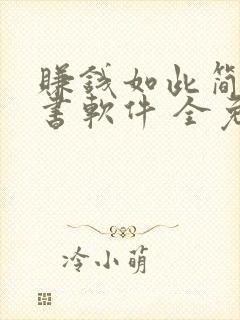 賺錢如此簡
書軟件 全免
冷小萌